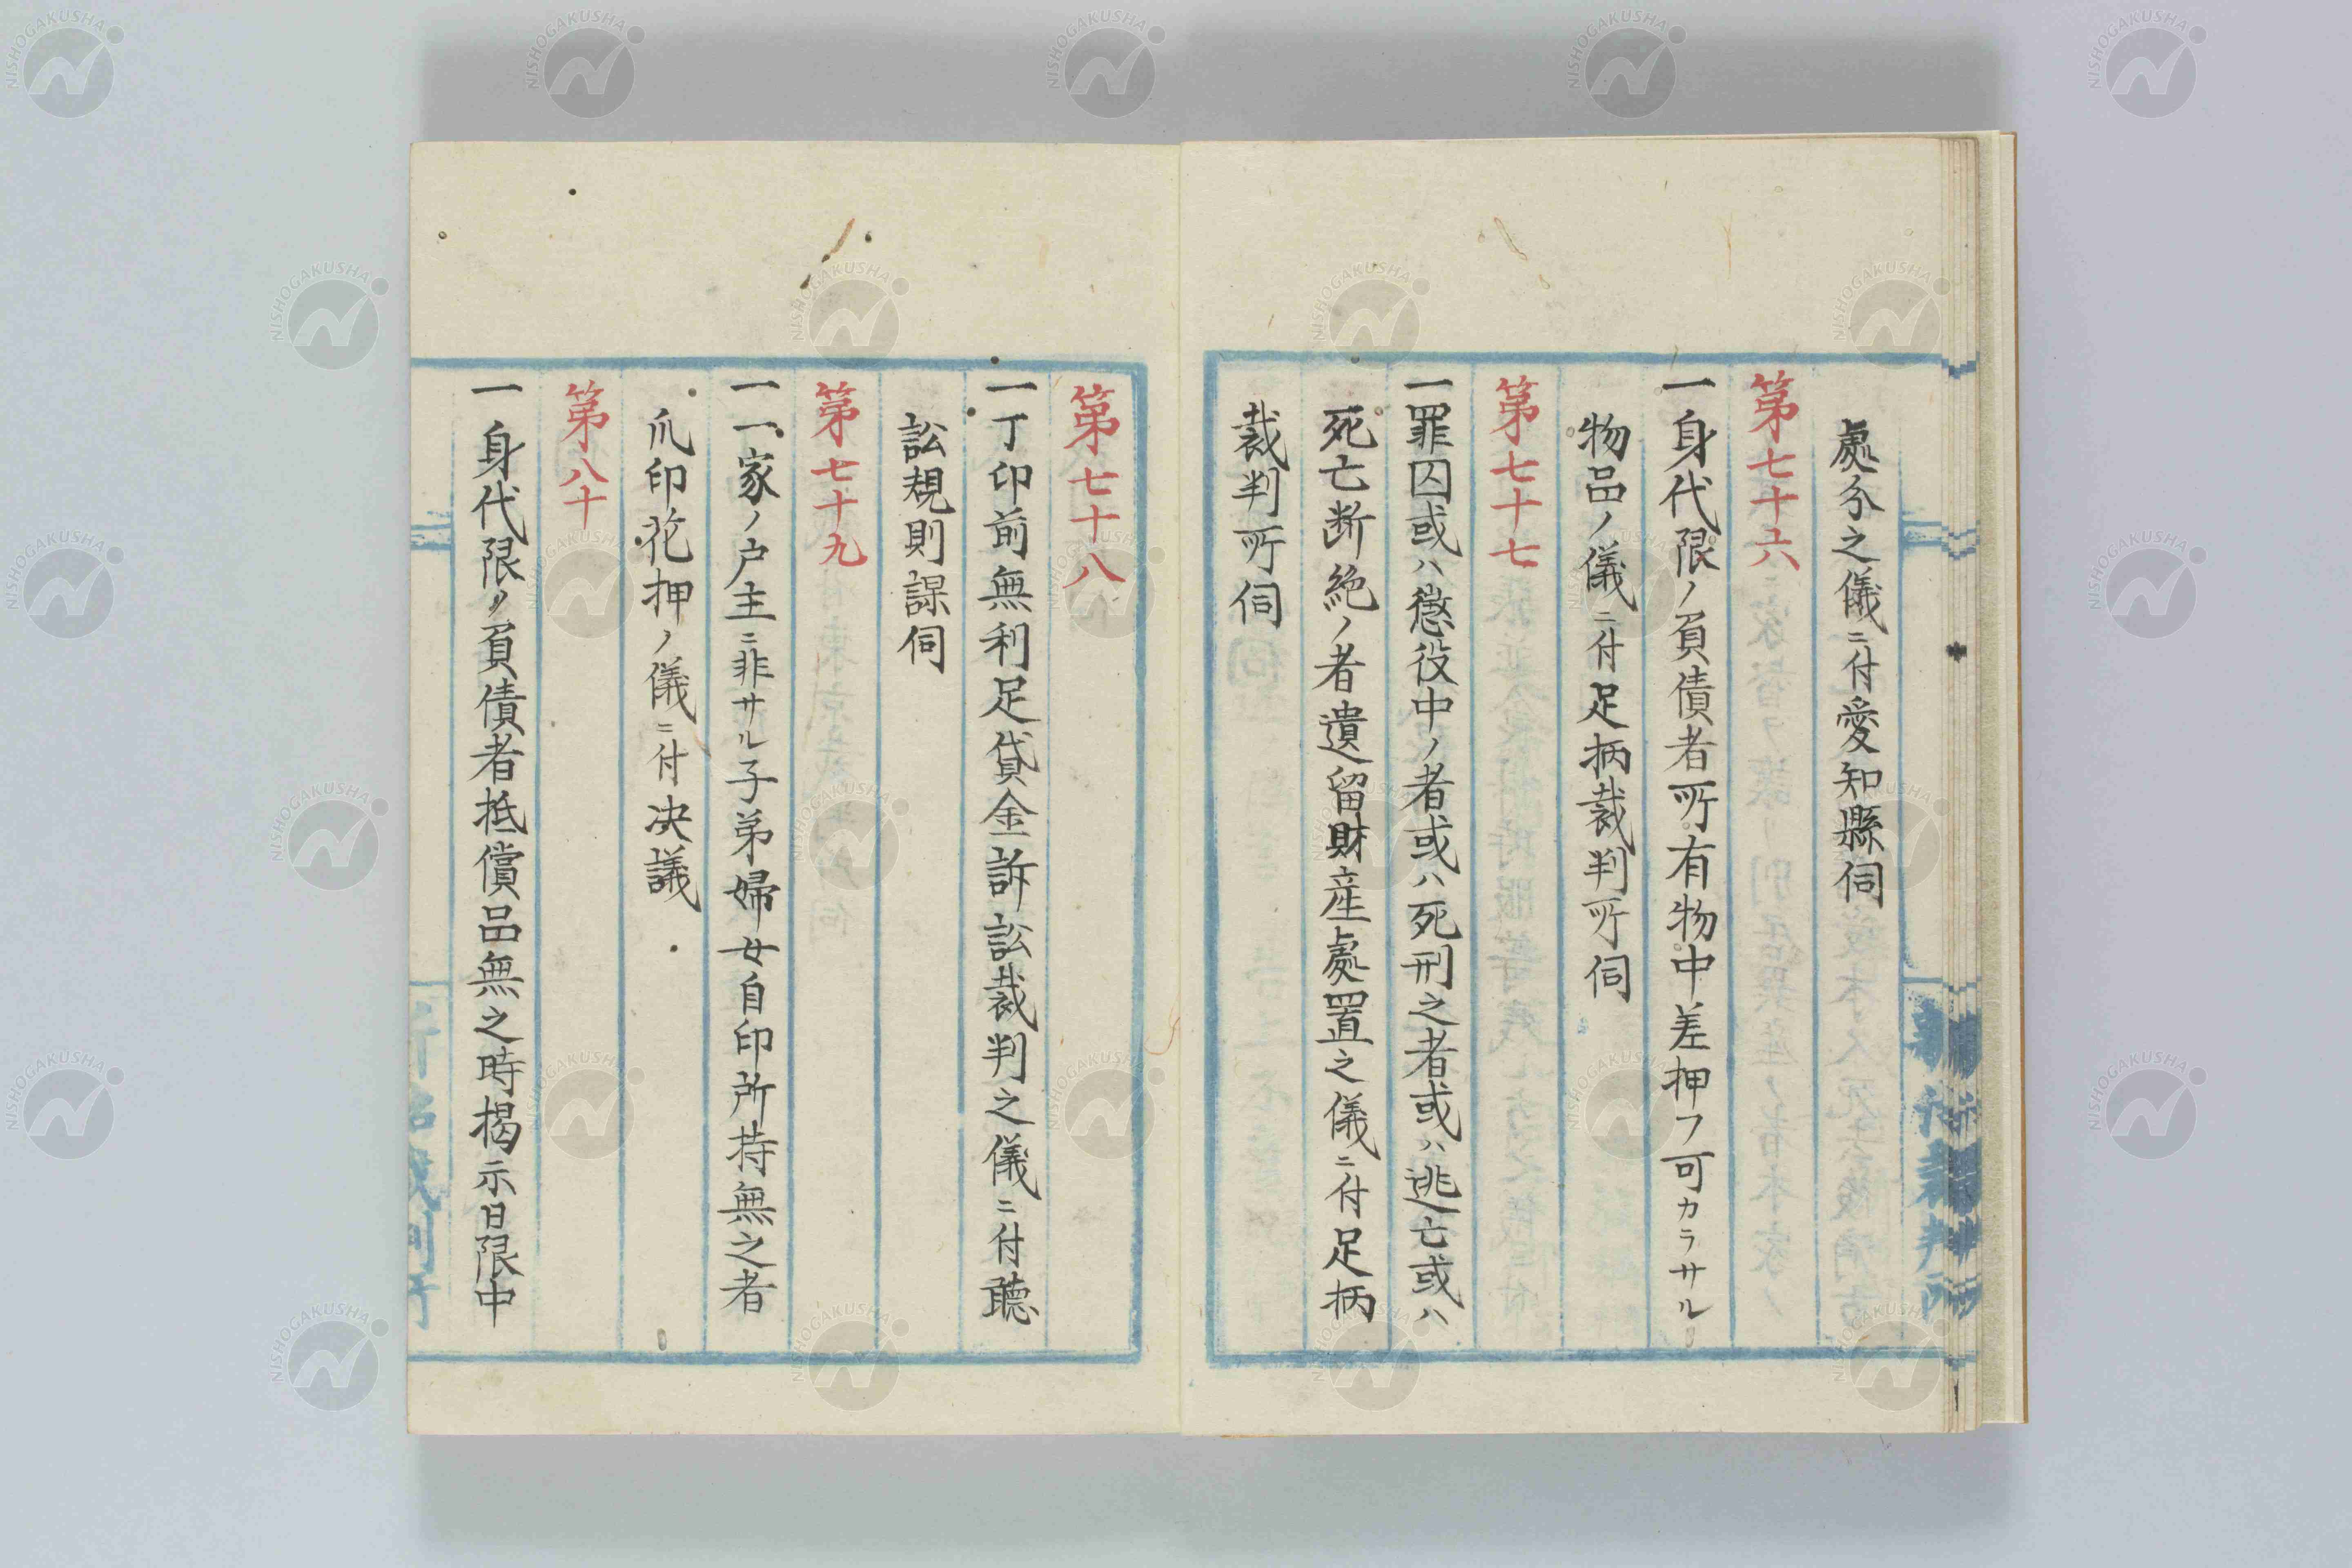 處分之儀ニ付愛知縣伺
第七十六
一身代限ノ負債者所有物中差押フ可カラサル
物品ノ儀ニ付足柄裁判所伺
第七十七
一罪囚或ハ懲役中ノ者或ハ死刑之者或ハ逃亡或ハ
死亡断絶ノ者遺留財産處置之儀ニ付足柄
裁判所伺
第七十八
一丁印前無利足貸金訴訟裁判之儀ニ付聽
訟規則課伺
第七十九
一一家ノ戸主ニ非サル子弟婦女自印所持無之者
爪印花押ノ儀ニ付决議
第八十
一身代限リ負債者抵償品無之時揭示日限中
NISHOGAKUSHA